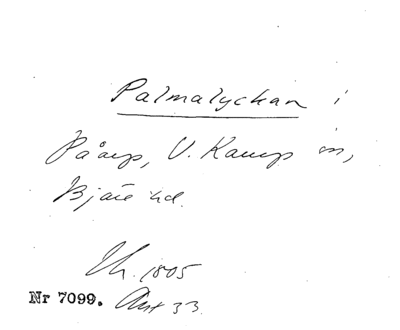 Palmalyckan i
Påarp, V. Karup sn,
Bjäre hd.
Lh. 1805
Nr 7099. Akt 33.